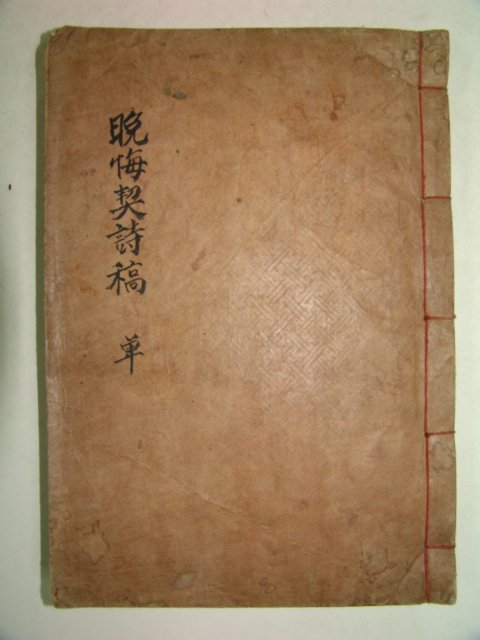 晩悔契詩稿 単